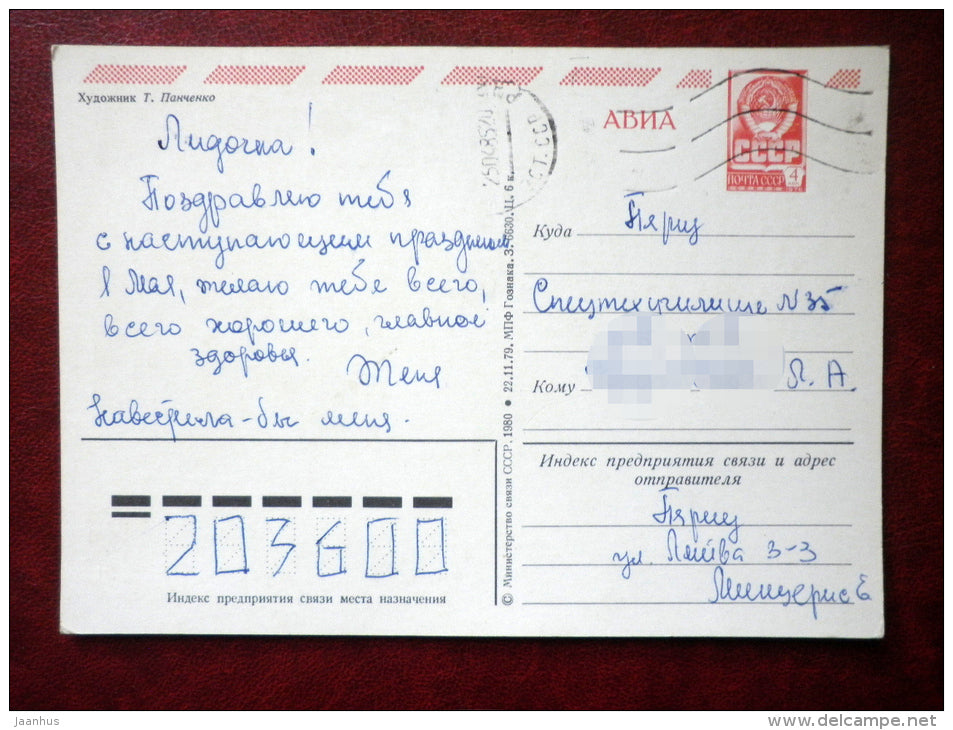 Художник Т. Панченко
Лидочка!
Поздравляю тебя
с наступающим праздником
1 Мая, желаю тебе всего,
всего хорошего, главное
здоровья.
Женя
Навестила-бы меня.
203600
Индекс предприятия связи места назначения
© Министерство связи СССР. 1980 ● 22.11.79. МПФ Гознака. З. 6630. Ц. 6 к.
АВИА
СССР
ПОЧТА СССР
4
Куда Пярну
Спецтехучилище N 35
Кому Л. А.
Индекс предприятия связи и адрес
отправителя
Пярну
ул. 3-3
jaanhus
www.delcampe.net